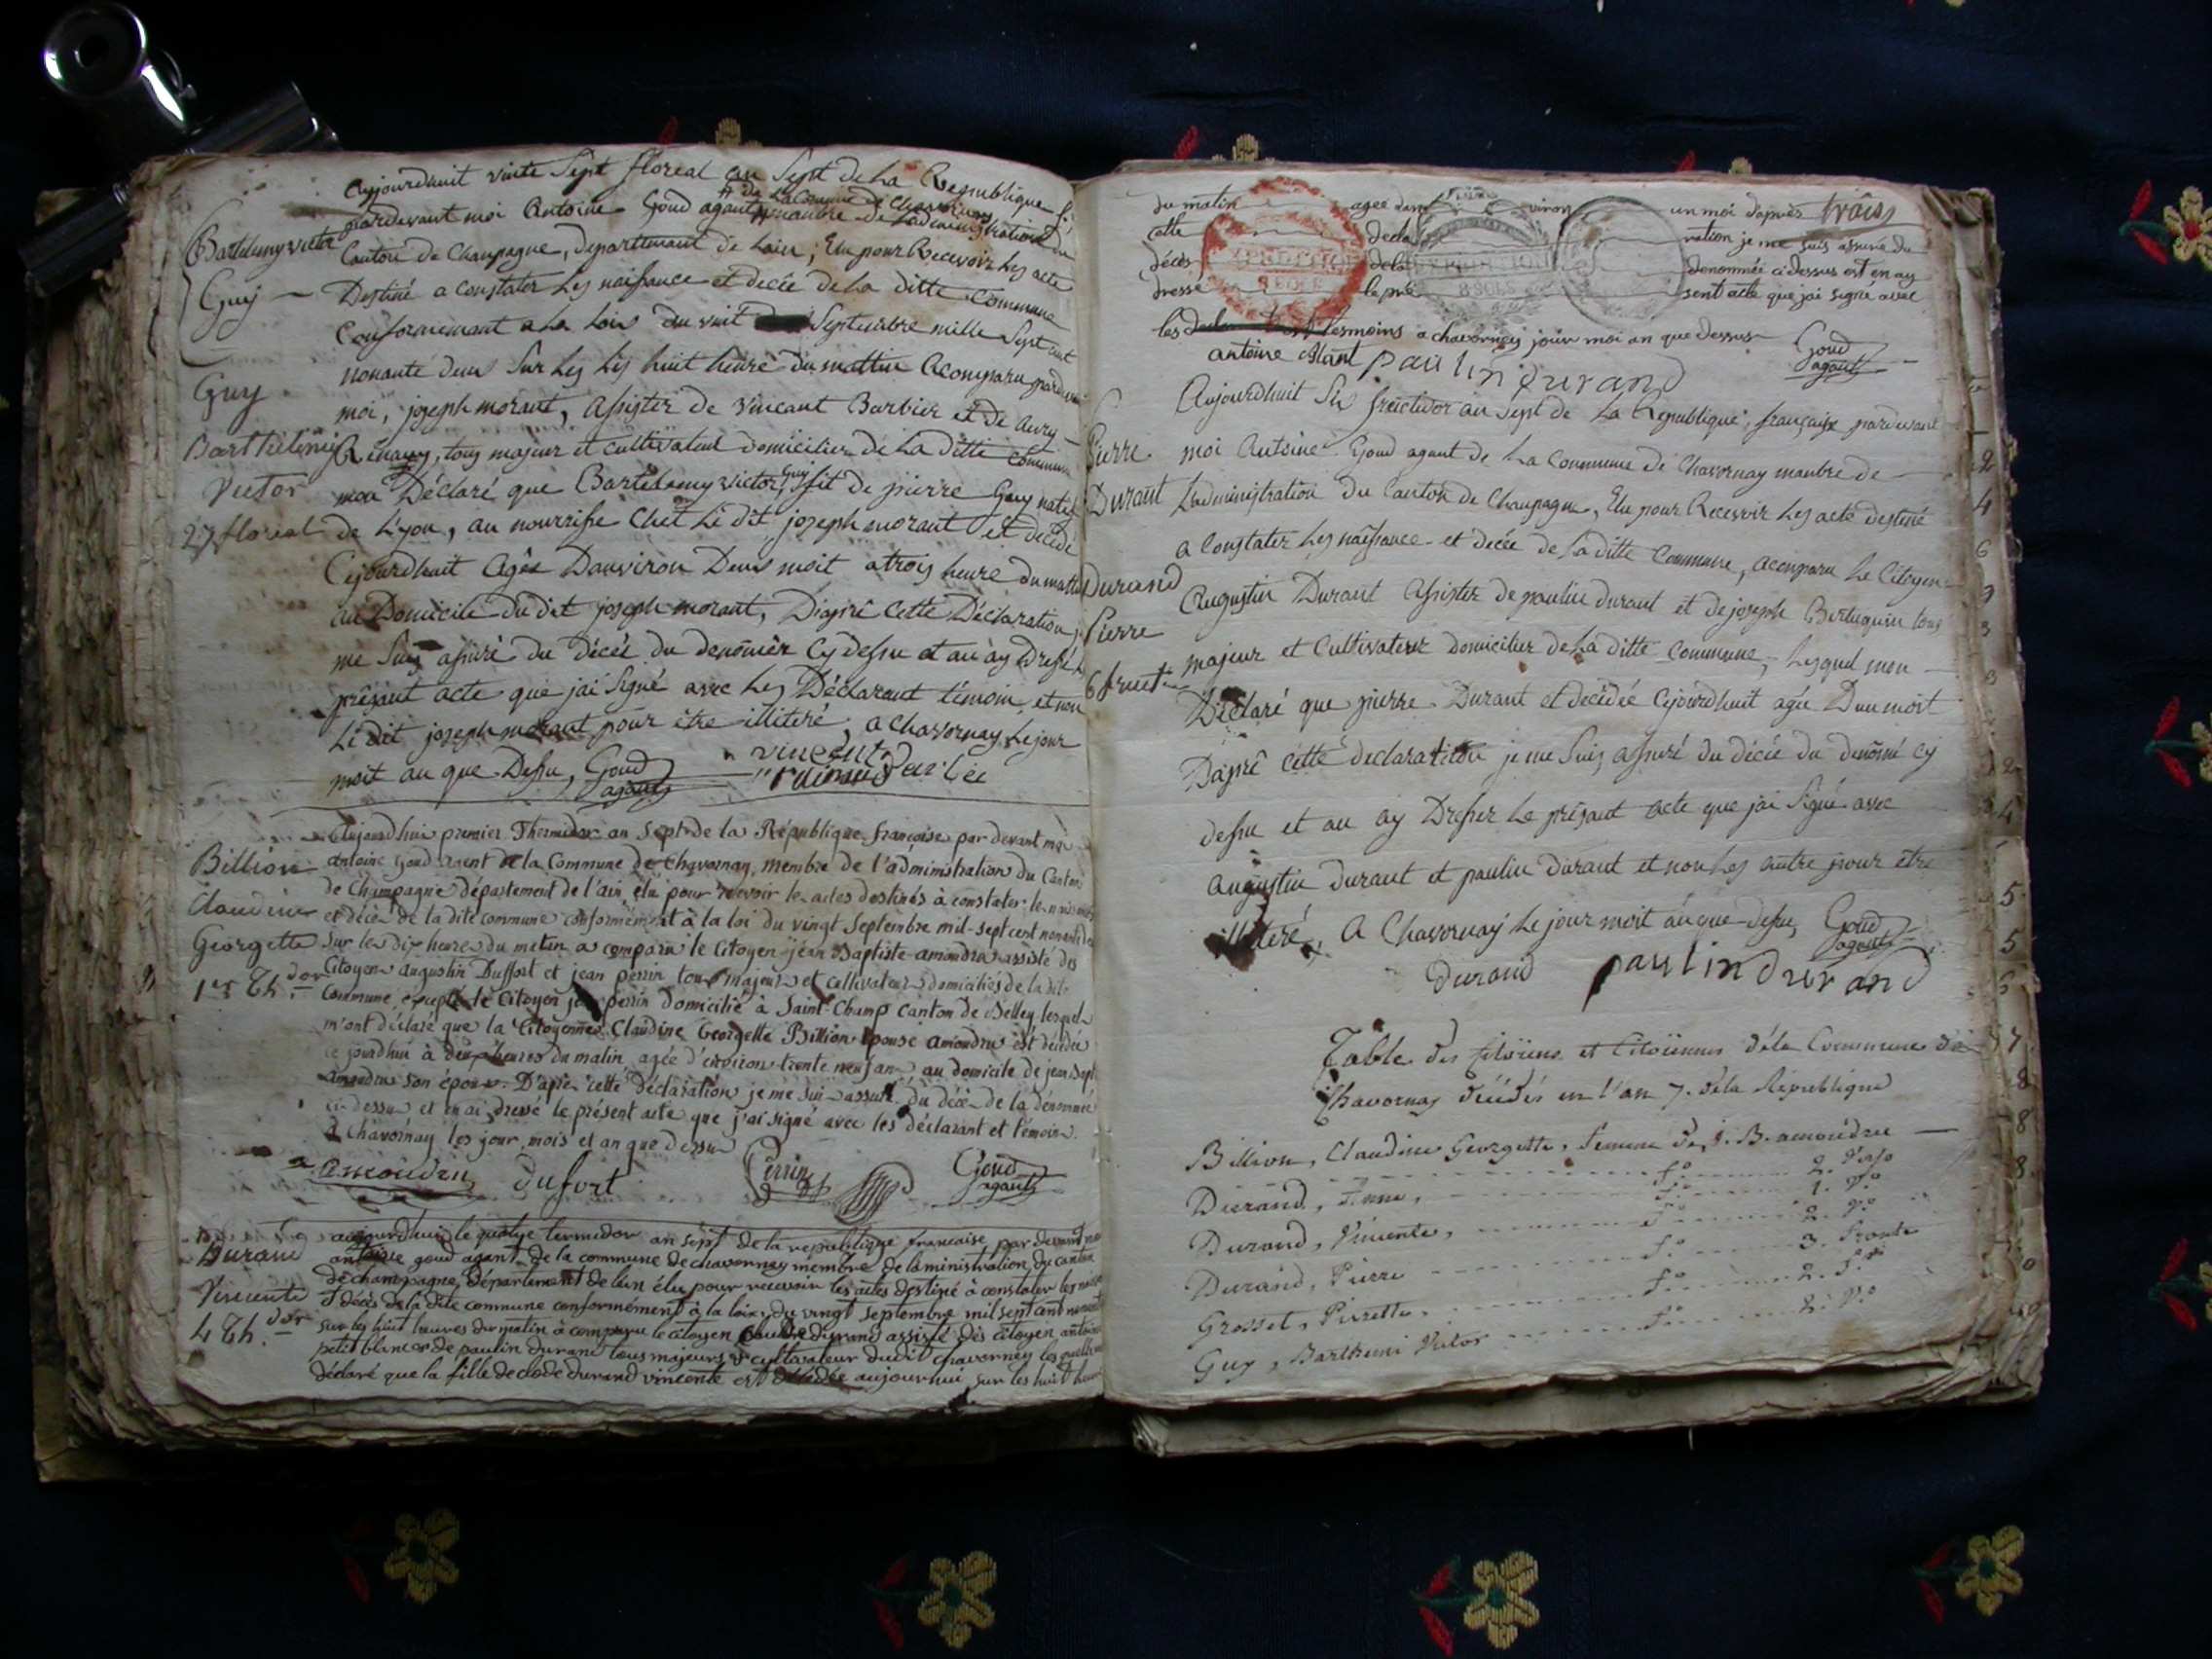 aujourdhuit vinte Sept floreal an Sept de La Republique
pardevant moi Antoine Goud agant de La Commune de Chavornay manbre de Ladministration du
Bartelemy victor
Canton de Champagne, departemant de Lain; Elu pour Recevoir Les acte
Guy
Destiné a Constater Les naissance et decée de La ditte Commune
Conformemant a La Lois du vint Septembre mille Sept cent
nonante deux Sur Les huit heure du mattin a Comparu
Guy
moi, joseph morant, assister de Vincant Barbier et de
Barthélemi
tous majeur et cultivateur domicilier de La ditte Commune
Victor
mon Déclaré que Bartelemy victor Guy fit de pierre Guy natif
27 floréal
de Lyon, au nourrisse Chet Le dit joseph morant et décédé
Cejourdhuit agée Danviron Deux moit a trois heure du mattin
au Domicile du dit joseph morant, Diaprè Cette Déclaration,
me Suis assuré du décée du denomée Cy dessu et an ay Dressé Le
présant acte que jai Signé avec Les Déclarant témoin, et non
Le dit joseph morant pour être illiteré, a Chavornay Le jour
moit an que Dessu, Goud
agant
vincent
Aujourdhui premier Thermidor an Sept de la République francoise par devant moi
Billion
antoine Goud agent de la Commune de Chavornay, membre de l'administration du Canton
de Champagne département de l'ain, élu pour recevoir les actes destinés à constater les naissances
Claudine
et décès de la dite commune conformément à la loi du vingt Septembre mil sept cent nonante deux
Georgette
Sur les dix heures du matin a comparu le Citoyen jean Baptiste amoudru assisté des
1er Th.dor
Citoyens augustin Duffort et jean perrin tous majeurs et cultivateurs domiciliés de la dite
Commune excepté le Citoyen jean perrin domicilié à Saint Champ Canton de Belley lesquels
m'ont déclaré que la Citoyenne Claudine Georgette Billion épouse amoudru est décédée
ce jourdhui à deux heures du matin, agée d'environ trente neuf ans au domicile de jean Bapt.
amoudru son époux. D'après cette déclaration je me suis assuré du décès de la dénommée
ci-dessus et en ai dressé le présent acte que j'ai signé avec les déclarant et témoins.
à Chavornay les jour, mois et an que dessus
amoudru dufort Perrin Goud
agant
Durand
aujourdhui le quatre termidor an sept de la republique francaise par devant moi
antoine goud agant de la commune de chavorney membre de laministration du canton
Vincente
de champagne, département de lain élu pour recevoir les actes destiné à constater les
et décès de la dite commune conformément à la loix, du vingt septembre mil sept cent nonante
4 Th.dor
sur les huit heures du matin à comparu le citoyen Claude durand assisté des citoyen antoine
petit blanc et de paulin durand tous majeurs et cultivateur dudit chavorney lesquelles
déclaré que la fille de clode durand vincente est décédée aujourhui sur les huit heure
du matin agée danviron un moi daprès trois
cette declaration je me suis assuré du
décès de la denommée ci dessus est en ay
dressé le présent acte que jai signé avec
les temoins a chavorney jour moi an que dessus
antoine blanc paulin durand Goud
agant
Aujourdhuit Six fructidor an Sept de La Republique française pardevant
Pierre
moi Antoine Goud agant de La Commune de Chavornay manbre de
Durant
Ladministration du Canton de Champagne, Elu pour Recevoir Les acte destiné
a Constater Les naissance et decée de La ditte Commune, acomparu Le Citoyen
Durand
Augustin Durant assister de paulin durant et de joseph Bertuquin tous
Pierre
majeur et Cultivateur domicilier de La ditte Commune, Lesquel mon
6 fruct.
Déclaré que pierre Durant et décédée Cejourdhuit agée Dun moit
Daprè cette declaration je me Suis assuré du décée du denomé Cy
dessu et an ay Dresser Le présant acte que jai Signé avec
augustin durant et paulin durant et non Les autre pour être
illiteré, a Chavornay Le jour moit an que dessu, Goud
agant
durand paulin durand
Table des Citoiens et Citoiennes de la Commune de
Chavornay décédés en l'an 7. de la République
Billion, Claudine Georgette, femme de J. B. amoudru
Durand, Anne, f.o 2. v.o
Durand, Vincente, f.o 1. v.o
Durand, Pierre f.o 2. v.o
Grosset, Pierrette. f.o 3. Recto
Guy, Barthemi Victor f.o 2. v.o